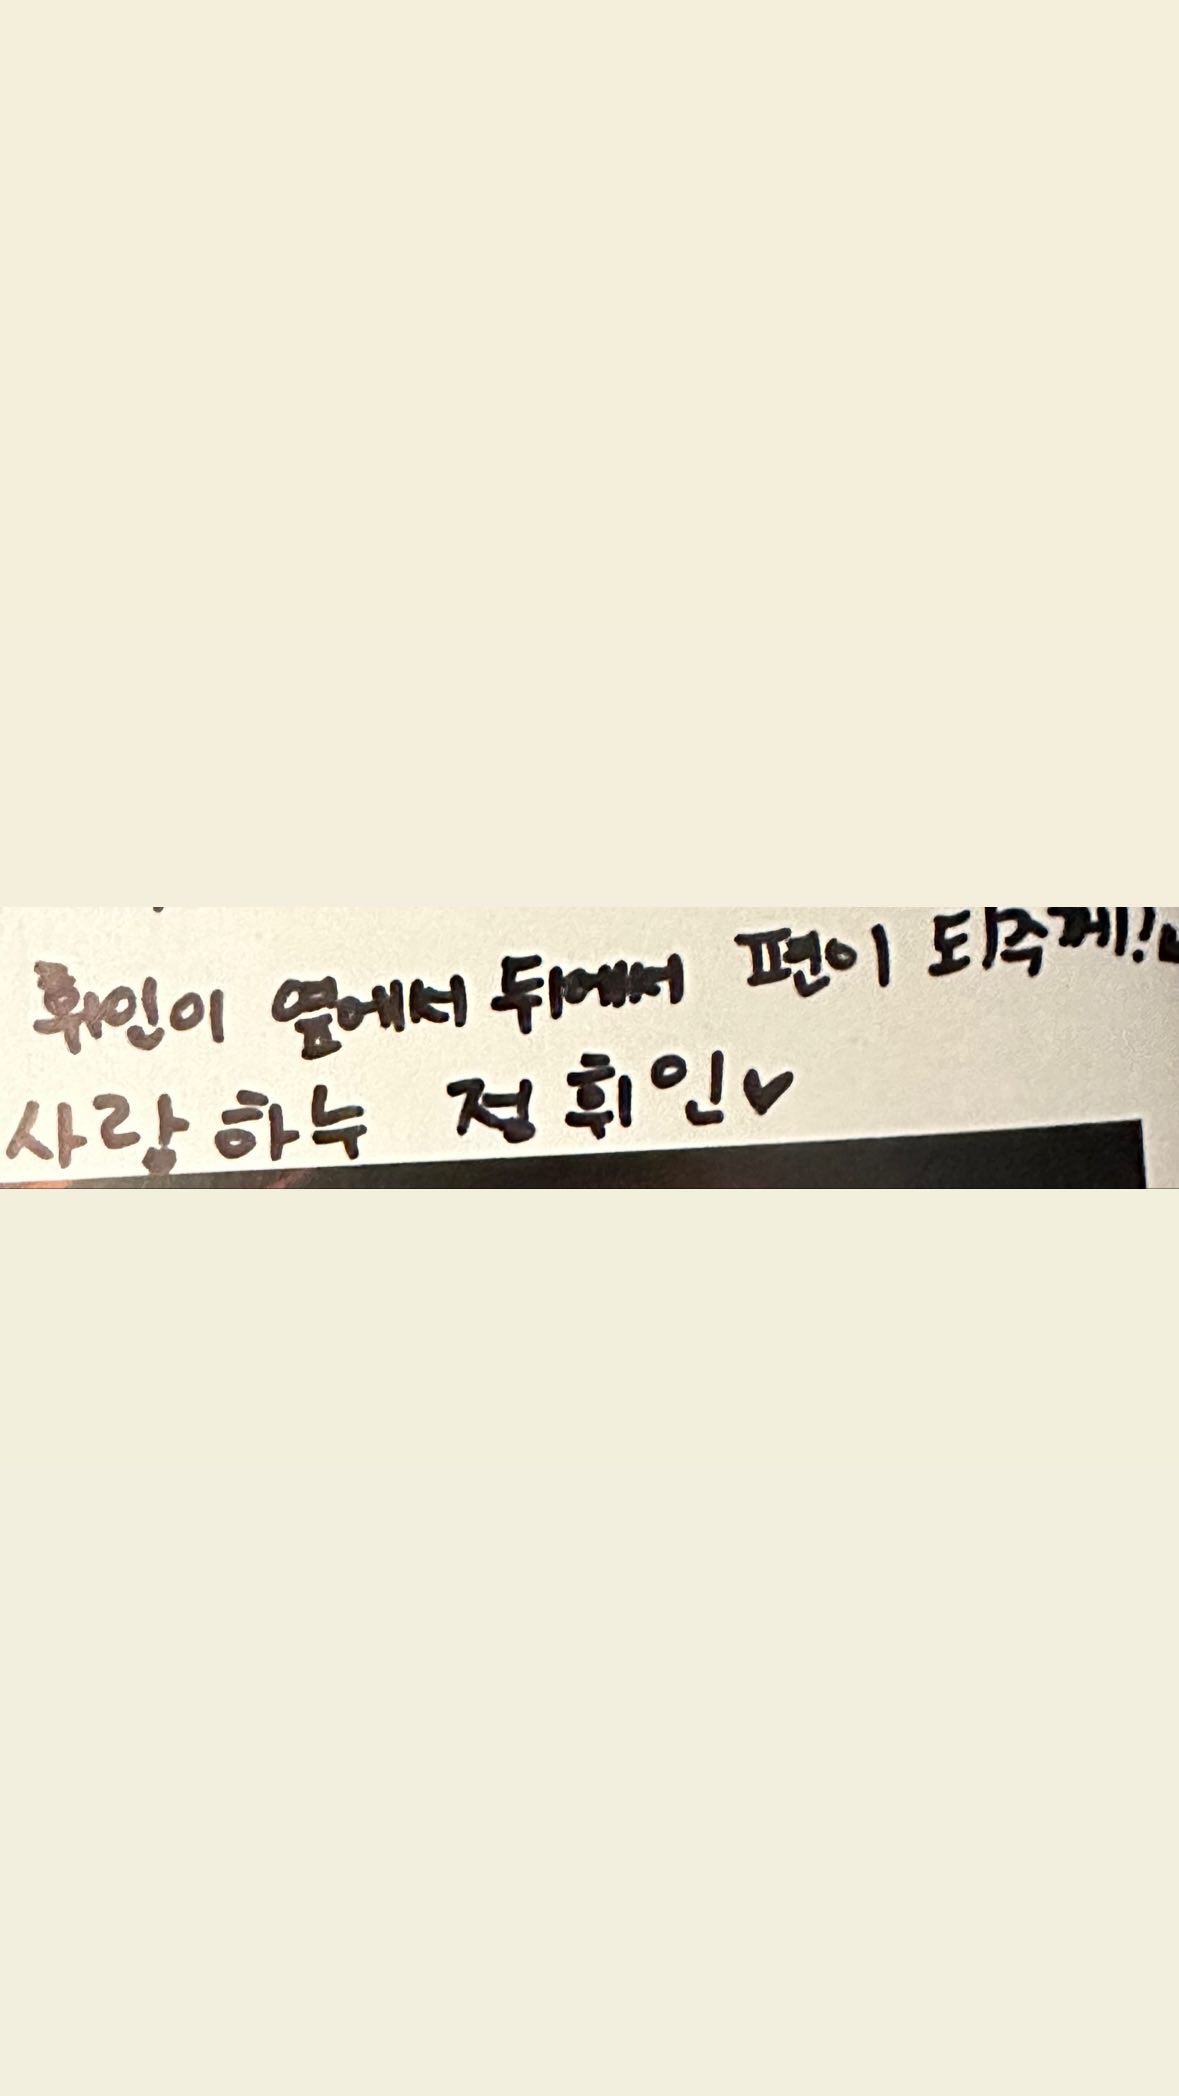 휘인이 옆에서 뒤에서 편이 되주께!
사랑하누 정휘인♥